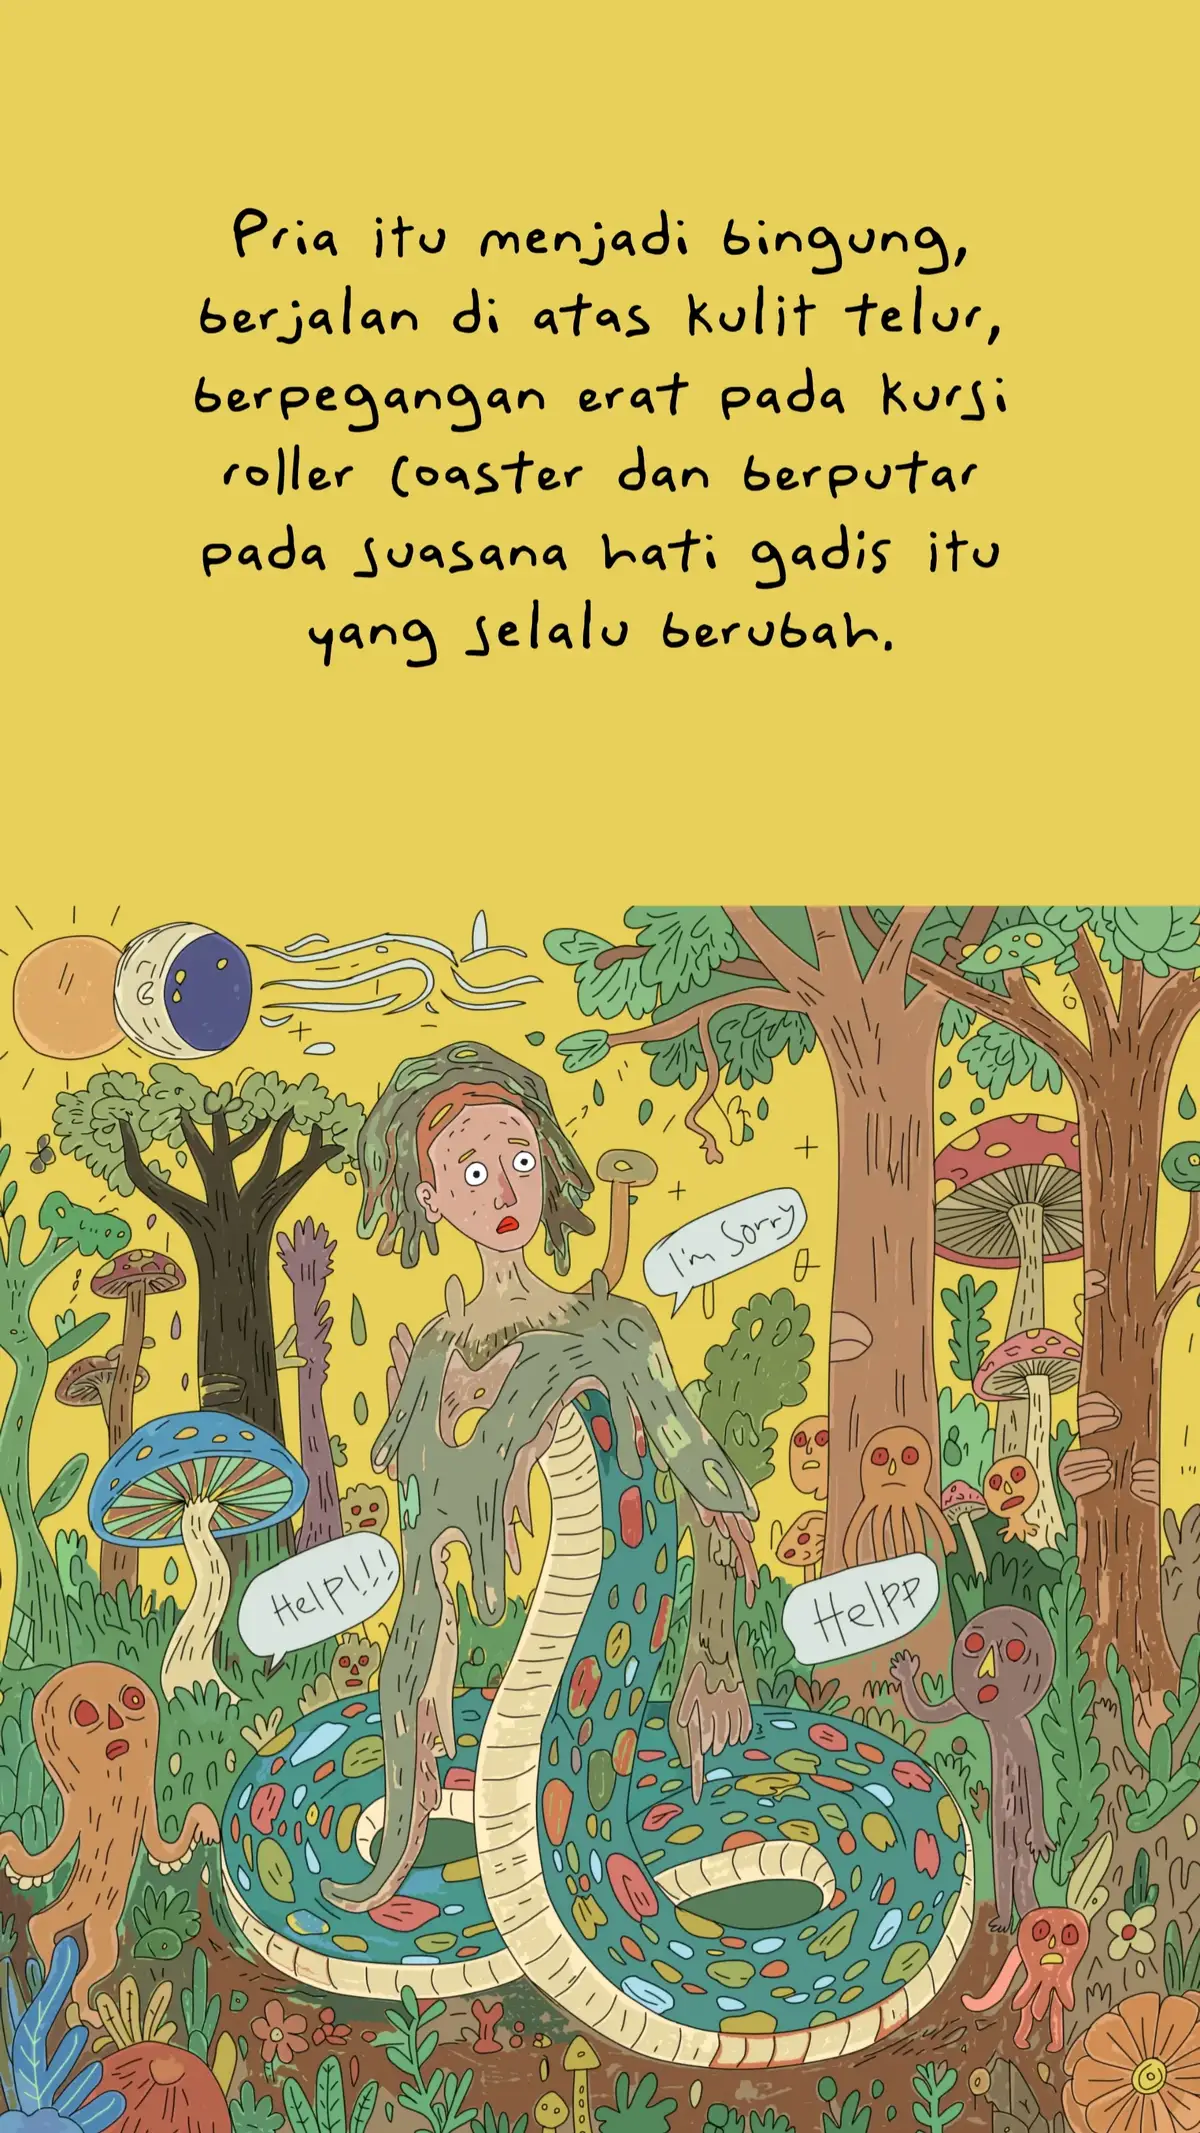 Pria itu menjadi bingung,
berjalan di atas kulit telur,
berpegangan erat pada kursi
roller coaster dan berputar
pada suasana hati gadis itu
yang selalu berubah.
I'm Sorry
Help!!!
Helpp